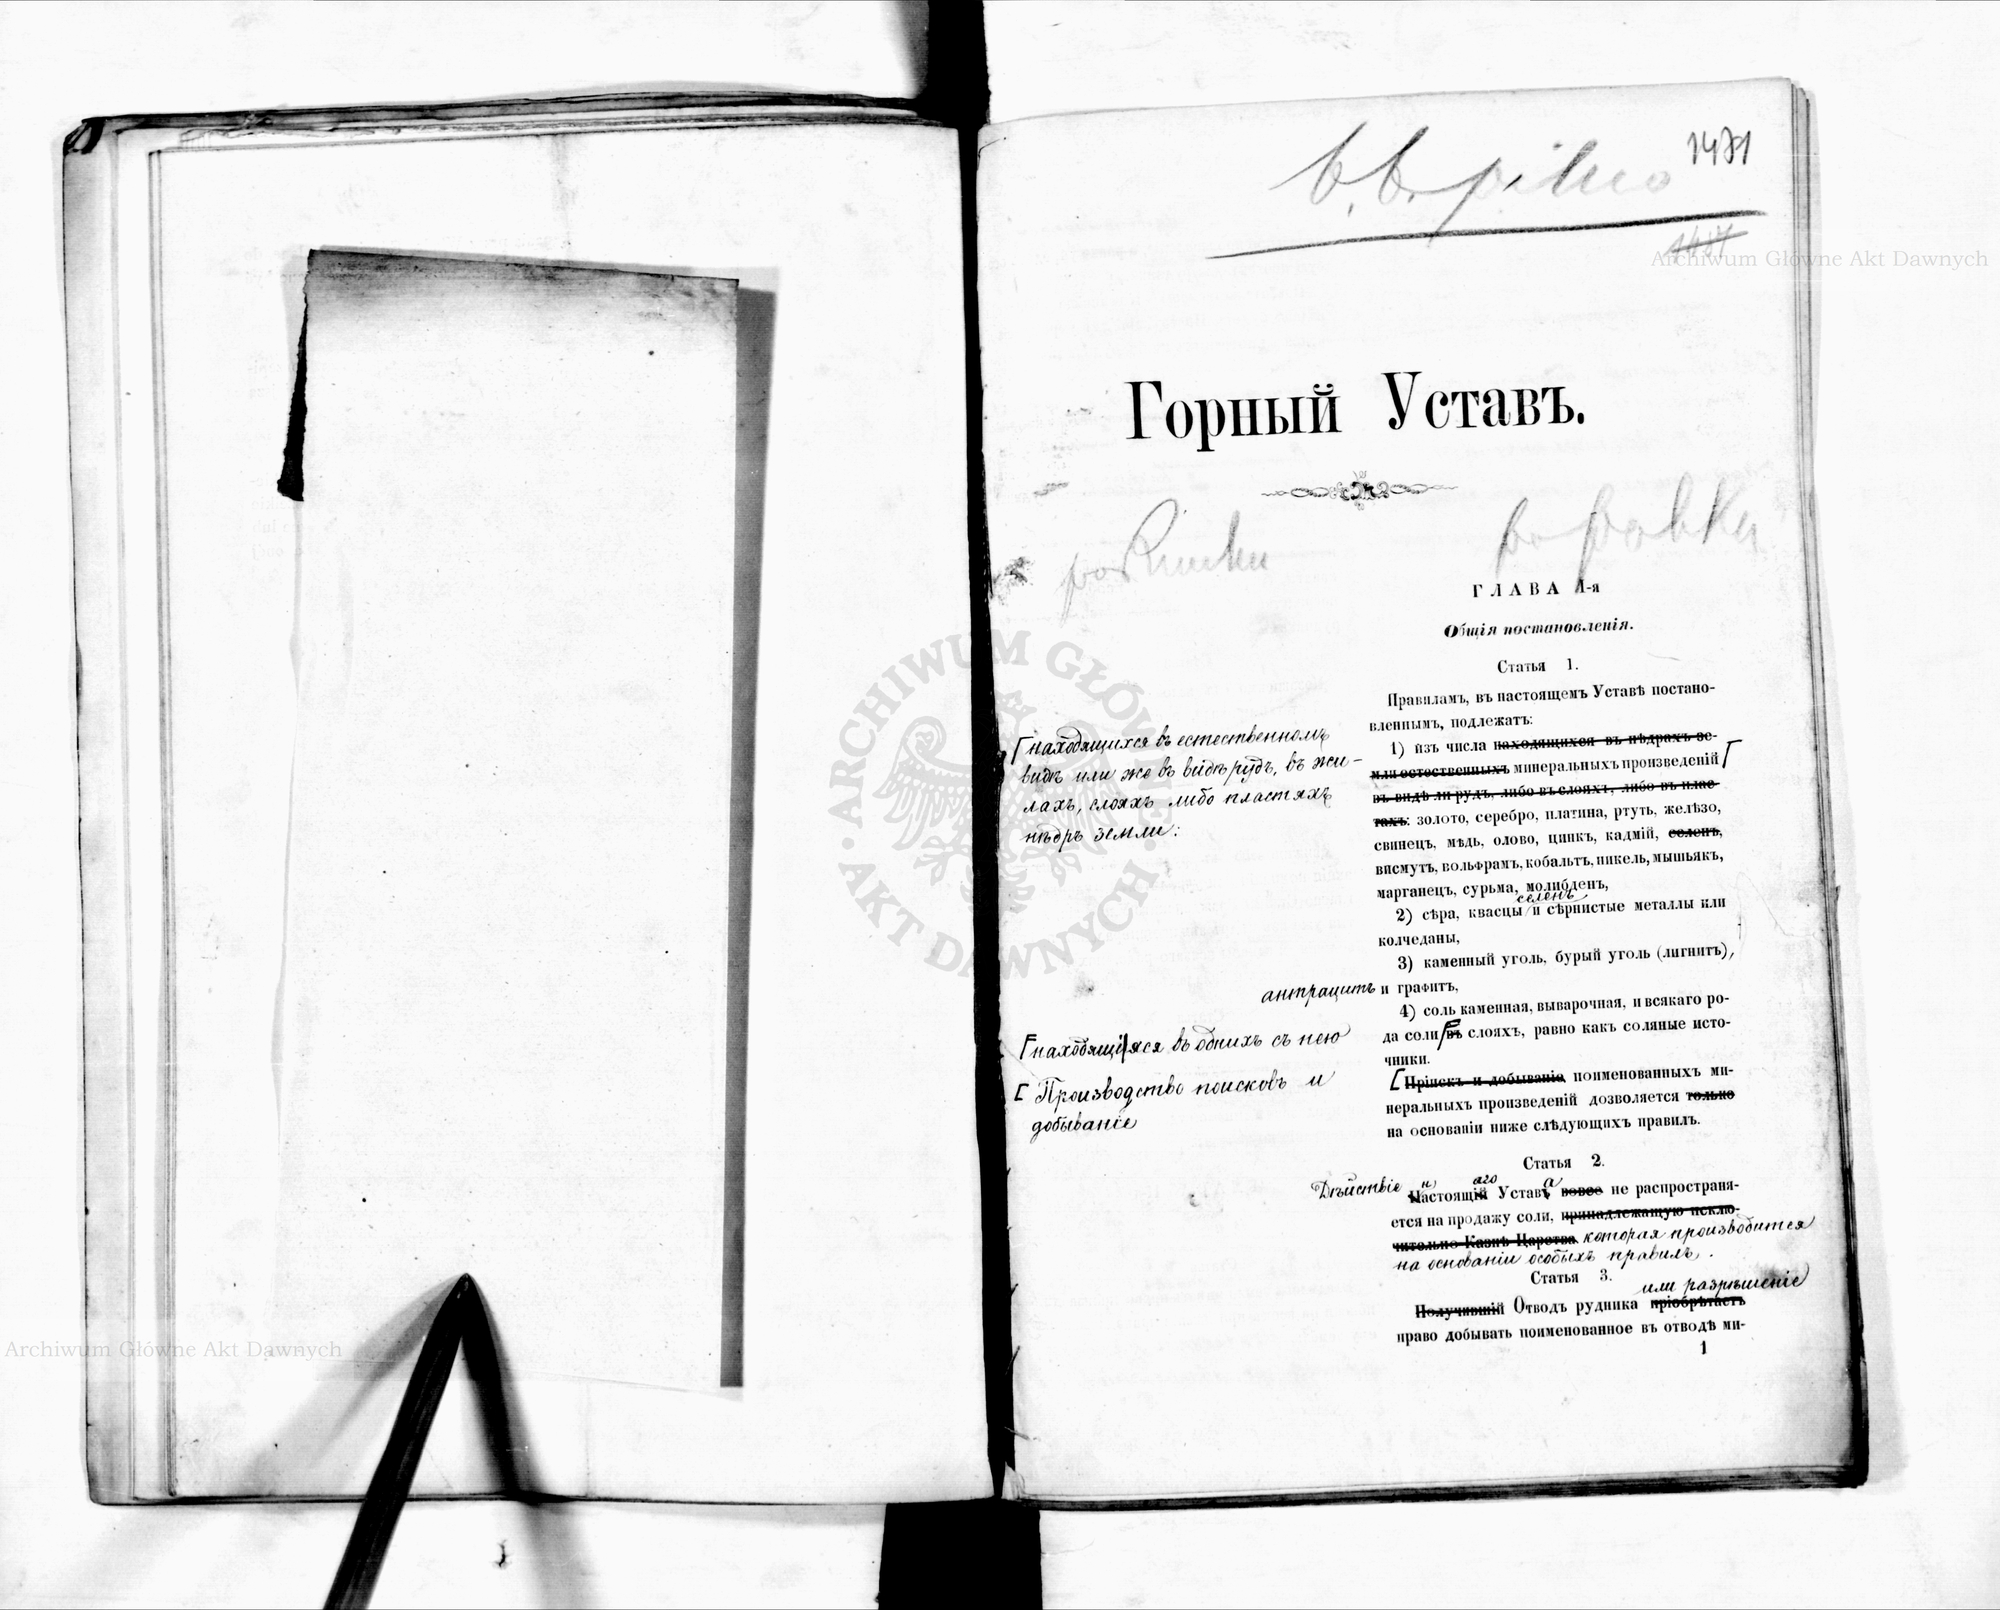 b. b. pilno
1481
Горный Уставъ.
ГЛАВА 1-я
Общія постановленія.
Статья 1.
Правиламъ, въ настоящемъ Уставѣ постано-
вленнымъ, подлежатъ:
1) изъ числа находящихся въ нѣдрахъ зе-
мли естественныхъ минеральныхъ произведеній
въ видѣ ли рудъ, либо въ слояхъ, либо въ плас-
тахъ: золото, серебро, платина, ртуть, желѣзо,
свинецъ, мѣдь, олово, цинкъ, кадмій, селенъ,
висмутъ, вольфрамъ, кобальтъ, никель, мышьякъ,
марганецъ, сурьма, молибденъ,
селенъ
2) сѣра, квасцы и сѣрнистые металлы или
колчеданы,
3) каменный уголь, бурый уголь (лигнитъ),
антрацитъ и графитъ,
4) соль каменная, выварочная, и всякаго ро-
да соли въ слояхъ, равно какъ соляные исто-
чники.
Пріискъ и добываніе поименованныхъ ми-
неральныхъ произведеній дозволяется только
на основаніи ниже слѣдующихъ правилъ.
находящихся въ естественномъ
видѣ или же въ видѣ рудъ, въ жи-
лахъ, слояхъ либо пластяхъ
нѣдръ земли:
находящіяся въ однихъ съ нею
Производство поисковъ и
добываніе
Статья 2.
Дѣйствіе н аго а
Настоящій Уставъ вовсе не распространя-
ется на продажу соли, принадлежащую исклю-
чительно Казнѣ Царства которая производится
на основаніи особыхъ правилъ.
Статья 3.
или разрѣшеніе
Получившій Отводъ рудника пріобрѣтаетъ
право добывать поименованное въ отводѣ ми-
1
Archiwum Główne Akt Dawnych
Archiwum Główne Akt Dawnych
ARCHIWUM GŁÓWNE AKT DAWNYCH